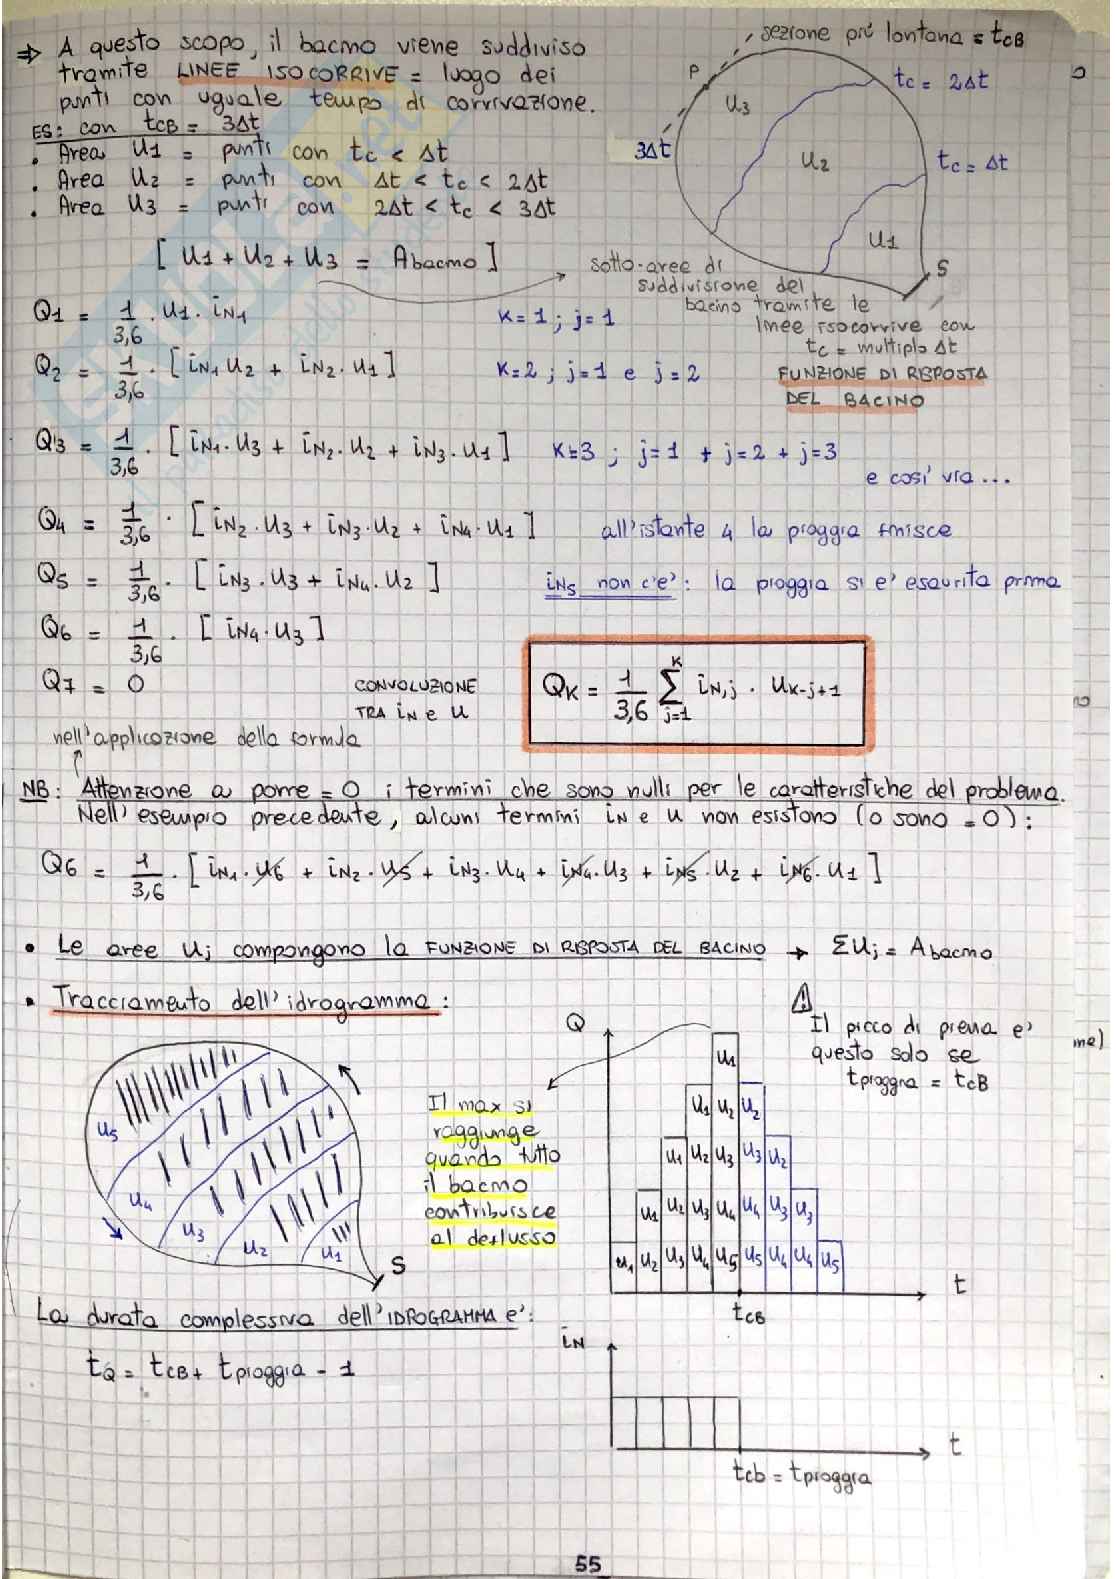 ⇒ A questo scopo, il bacino viene suddiviso
tramite LINEE ISOCORRIVE = luogo dei
punti con uguale tempo di corrivazione.
ES: con tCB = 3Δt
• Area U1 = punti con tc < Δt
• Area U2 = punti con Δt < tc < 2Δt
• Area U3 = punti con 2Δt < tc < 3Δt
[ U1 + U2 + U3 = Abacino ]
sezione più lontana = tCB
P
U3
tc = 2Δt
3Δt
U2
tc = Δt
U1
S
sotto-aree di
suddivisione del
bacino tramite le
linee isocorrive con
tc = multiplo Δt
FUNZIONE DI RISPOSTA
DEL BACINO
Q1 = 1/3,6 · U1 · iN1 K=1 ; j=1
Q2 = 1/3,6 · [ iN1 U2 + iN2 · U1 ] K=2 ; j=1 e j=2
Q3 = 1/3,6 · [ iN1 · U3 + iN2 · U2 + iN3 · U1 ] K=3 ; j=1 + j=2 + j=3
e così via ...
Q4 = 1/3,6 · [ iN2 · U3 + iN3 · U2 + iN4 · U1 ] all'istante 4 la pioggia finisce
Q5 = 1/3,6 · [ iN3 · U3 + iN4 · U2 ] iN5 non c'è: la pioggia si è esaurita prima
Q6 = 1/3,6 · [ iN4 · U3 ]
Q7 = 0
CONVOLUZIONE
TRA iN e U
QK = 1/3,6 Σ K j=1 iN,j · UK-j+1
nell'applicazione della formula
NB: Attenzione a porre = 0 i termini che sono nulli per le caratteristiche del problema.
Nell'esempio precedente, alcuni termini iN e U non esistono (o sono = 0):
Q6 = 1/3,6 · [ iN1 · U6 + iN2 · U5 + iN3 · U4 + iN4 · U3 + iN5 · U2 + iN6 · U1 ]
• Le aree Uj compongono la FUNZIONE DI RISPOSTA DEL BACINO → ΣUj = Abacino
• Tracciamento dell'idrogramma:
U5
U4
U3
U2
U1
S
Il max si
raggiunge
quando tutto
il bacino
contribuisce
al deflusso
Q
⚠
Il picco di piena è
questo solo se
tpioggia = tCB
U1
U1 U2 U2
U1 U2 U3 U3 U2
U1 U2 U3 U4 U4 U3 U3
U1 U2 U3 U4 U5 U5 U4 U4 U5
t
tCB
La durata complessiva dell'IDROGRAMMA è:
tQ = tCB + tpioggia - 1
iN
t
tcb = tpioggia
me)
55